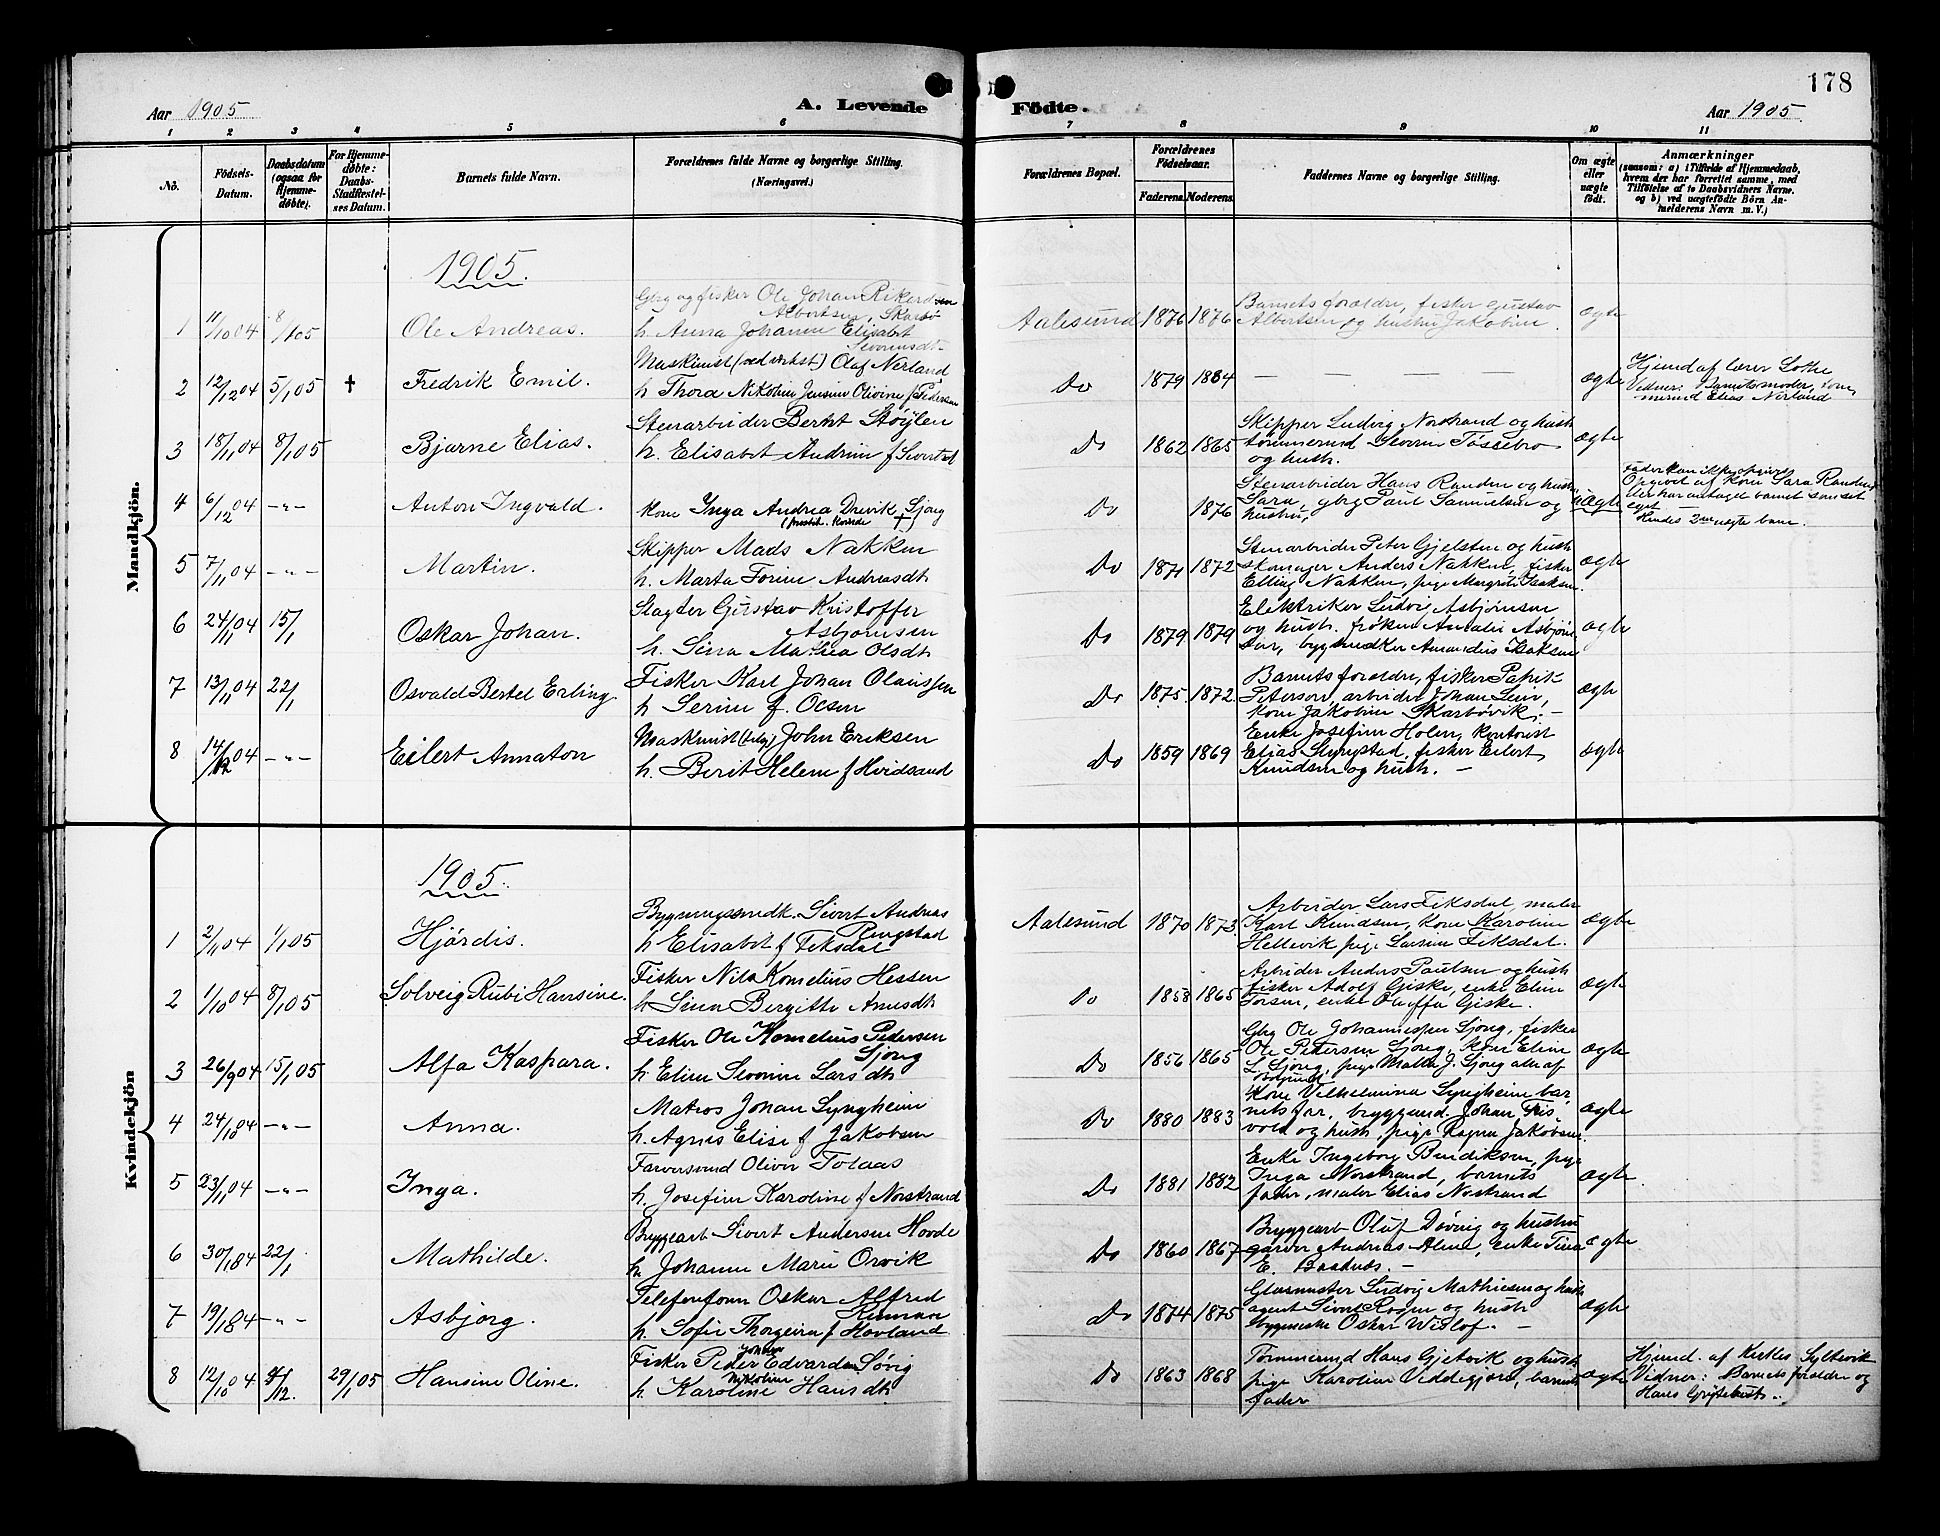 178
Aar 1905
A. Levende
Födte.
Aar 1905.
1 2 3 4 5 6 7 8 9 10 11
No.
Födsels-
Datum.
Daabsdatum
(ogsaa for
Hjemme-
döbte).
For Hjemme-
döbte:
Daabs-
Stadfæstel-
ses Datum.
Barnets fulde Navn.
Forældrenes fulde Navne og borgerlige Stilling.
(Næringsvei.)
Forældrenes Bopæl.
Forældrenes
Födselsaar.
Faderens. Moderens.
Faddernes Navne og borgerlige Stilling.
Om ægte
eller
uægte
födt.
Anmærkninger
(saasom: a) i Tilfælde af Hjemmedaab,
hvem der har forrettet samme, med
Tilföielse af to Daabsvidners Navne.
og b) ved uægtefödte Börn An-
melderens Navn m. V.)
Mandkjön.
1905.
1 11/10 04 8/1 05 Ole Andreas.
Gbrg og fisker Ole Johan Rikardsen
Albertsen, Skarbø
h. Anna Johanne Elisabet
Sevrinsdt.
Aalesund 1876 1876
Barnets foraldre, fisker Gustav
Albertsen og hustru Jakobine.
ægte
2 12/12 04 5/1 05 † Fredrik Emil.
Maskinist (ved værkst.) Olaf Nerland
h Thora Nikoline Jensine Olivine f Pedersen
Do 1879 1884 — — — — ægte
Hjemd af lærer Sothe
Vidner: Barnets moder, tøm-
mermd Elias Nerland
3 18/11 04 8/1 05 Bjarne Elias.
Stenarbeider Bernt Støylen
h. Elisabet Andrine f Sivertsdt
Do 1862 1865
Skipper Ludvig Norstrand og hust
tømmermd Severin Tøssebro
og hust.
ægte
4 6/12 04 -"- Anton Ingvald.
Kone Inga Andrea Drevik Sjong
Do 1876
Stenarbeider Hans Randen og hust
Sara, gbrg Paul Samuelsen og
hustru,
uægte
Fader kan ikke opgives
Opgivet af Kone Sara Randen
der har antaget barnet som sit
eget.
Hendes 2den uægte barn.
5 7/11 04 -"- Martin.
Skipper Mads Nakken
h. Marta Torine Andreasdt
Do 1871 1872
Stenarbeider Peter Gjelsten og hust
skomager Anders Nakken, fisker
Elling Nakken, pige Margrete Isaksen.
ægte
6 24/11 04 15/1 Oskar Johan.
Slagter Gustav Kristoffer
Asbjørnsen
h. Sina Mathea Olsdt
Do 1879 1879
Elektriker Ludvig Asbjørnsen
og hust. frøken Amalie Asbjørn-
sen, bygsnedker Amandus Isaksen
ægte
7 13/11 04 22/1 Osvald Bertel Erling.
Fisker Karl Johan Olaussen
h Serine f. Olsen
Do 1875. 1872.
Barnets foraldre, fisker Patrik
Peterson, arbeider Johan Lein,
kone Jakobine Skarbøvik. —
ægte
8 14/12 04 -"- Eilert Annaton
Maskinist John Eriksen
h. Berit Helene f Hvidsand
Do 1859 1869
Enke Josefine Holen, kontorist
Elias Slyngstad, fisker Eilert
Knudsen og hust. —
ægte
Kvindekjön
1905.
1 2/11 04 1/1 05 Hjørdis.
Bygningssnedk. Sivert Andreas
Ringstad
h Elisabet f Fiksdal
Aalesund 1870 1873.
Arbeider Lars Fiksdal, maler
Karl Knudsen, kone Karoline
Hellevik pige Larsine Fiksdal.
ægte
2 1/10 04 8/1 05 Solveig Rubi Hansine.
Fisker Nils Kornelius Hessen
h Sina Bergitte Arnesdt
Do 1858 1865
Arbeider Anders Paulsen og hust
fisker Adolf Giske, enke Eline
Torsen, enke Oluffa Giske.
ægte
3 26/9 04 15/1 05 Alfa Kaspara.
Fisker Ole Kornelius Pedersen
Sjong
h Eline Severine Larsdt
Do 1856 1865
Gbrg Ole Johannessen Sjong, fisker
Ole Pedersen Sjong, kone Eline
L. Sjong, pige Malla J. Sjong alle af
ægte
4 24/1 84 -"- Anna.
Matros Johan Lyngheim
h. Agnes Elise f Jakobsen
Do 1880 1883
Kone Vilhelmina Lyngheim bar-
nets far, bryggemd. Johan Gris-
vold og hust, pige Ragna Jakobsen.
ægte
5 23/11 04 -"- Inga.
Farversvend Oliver Tolaas
h. Josefine Karoline f Norstrand
Do 1881 1882
Enke Ingeborg Bendiksen, pige
Inga Norstrand, barnets
fader, maler Elias Norstrand
ægte
6 30/1 84 22/1 Mathilde.
Bryggearb Sivert Andersen Hovde
h. Johanne Marie Orvik
Do 1860 1867
Bryggearb Oluf Døving og hustru
garver Andreas Alme, enke Tina
E. Baadnæs. —
ægte
7 19/1 84 -"- Asbjørg.
Telefonform Oskar Alfred
Kinman
h. Sofie Thorgeira f Hovland
Do 1874 1875
Glasmester Ludvig Mathisen og hust
agent Sivert Rogne og hust
byggmester Oskar Widlof. —
ægte
8 12/10 04 4/12. 29/1 05 Hansine Oline.
Fisker Peder Johan Edvardsen Søvig
h Karoline Nikoline Hansdt
Do 1863 1868
Tømmermd Hans Gjetvik og hust
pige Karoline Viddegjerd, barnets
fader
ægte
Hjemd. af Kirkes. Syltevik
Vidner: Barnets foraldre og
Hans Gjeitvikhust.